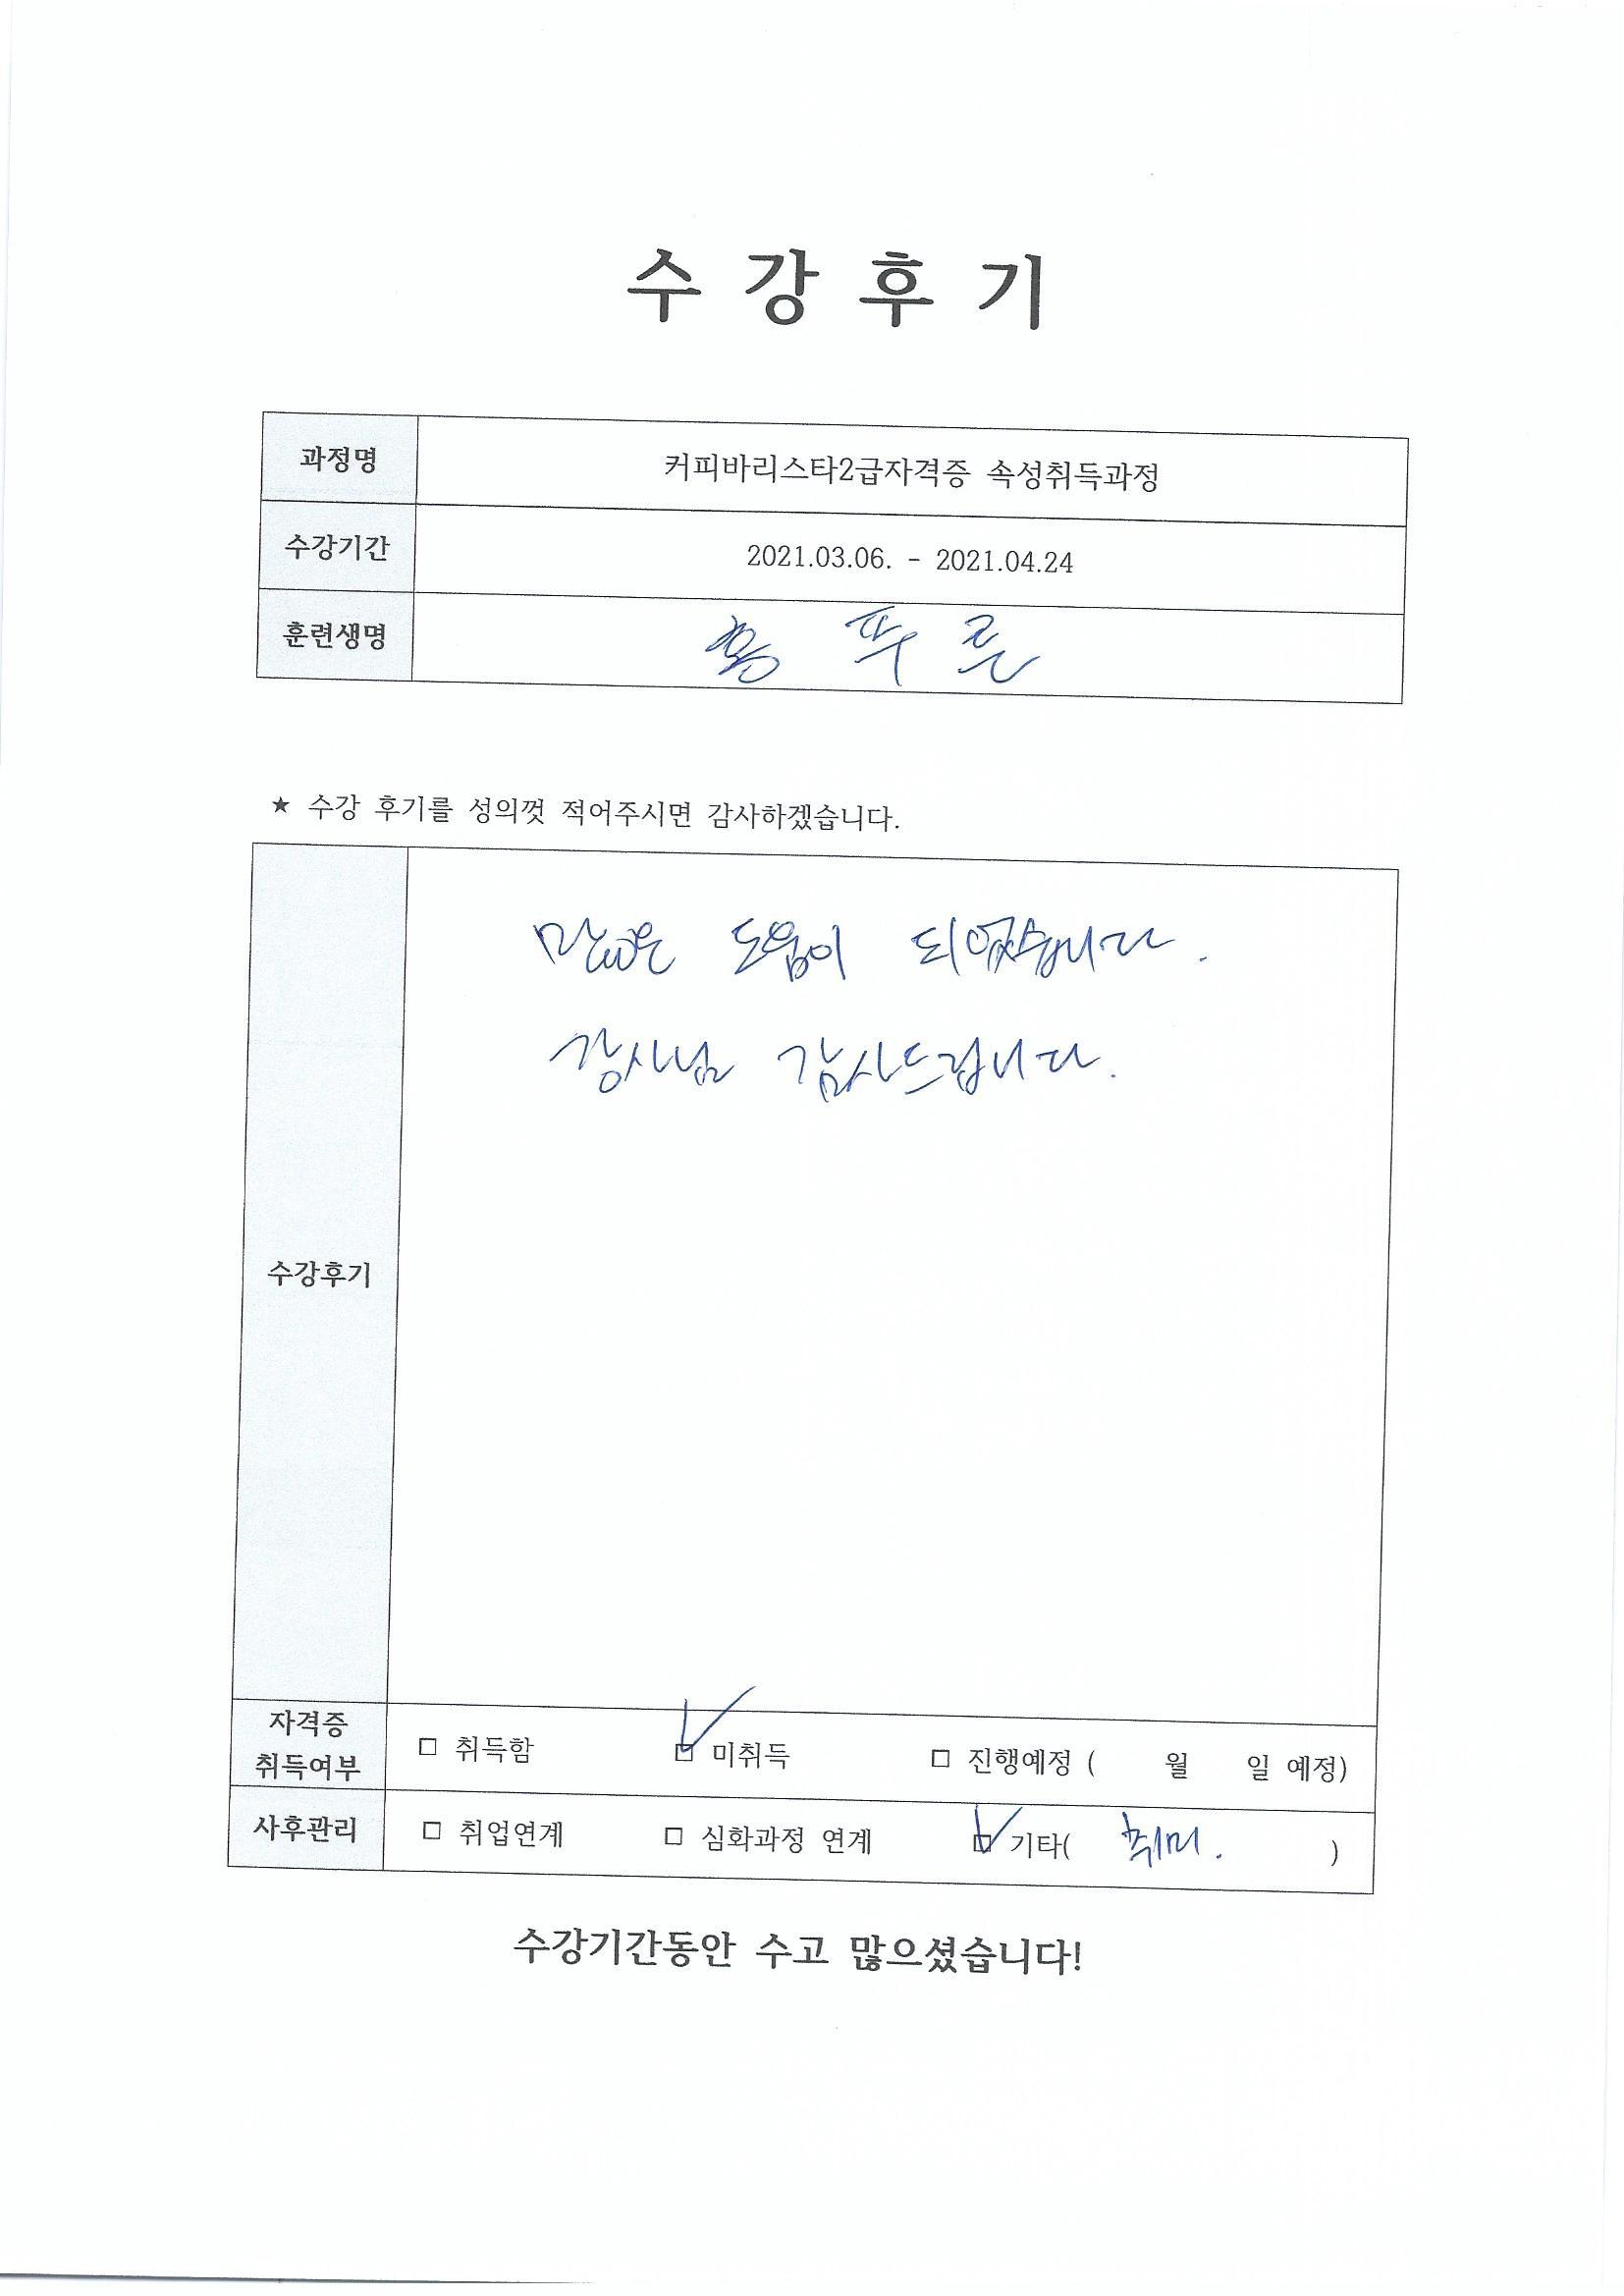 수 강 후 기
과정명 커피바리스타2급자격증 속성취득과정
수강기간 2021.03.06. - 2021.04.24
훈련생명 홍 푸 른
★ 수강 후기를 성의껏 적어주시면 감사하겠습니다.
많은 도움이 되었습니다.
강사님 감사드립니다.
수강후기
자격증
취득여부
□ 취득함 □ 미취득 □ 진행예정 ( 월 일 예정)
사후관리 □ 취업연계 □ 심화과정 연계 □ 기타( 취미. )
수강기간동안 수고 많으셨습니다!